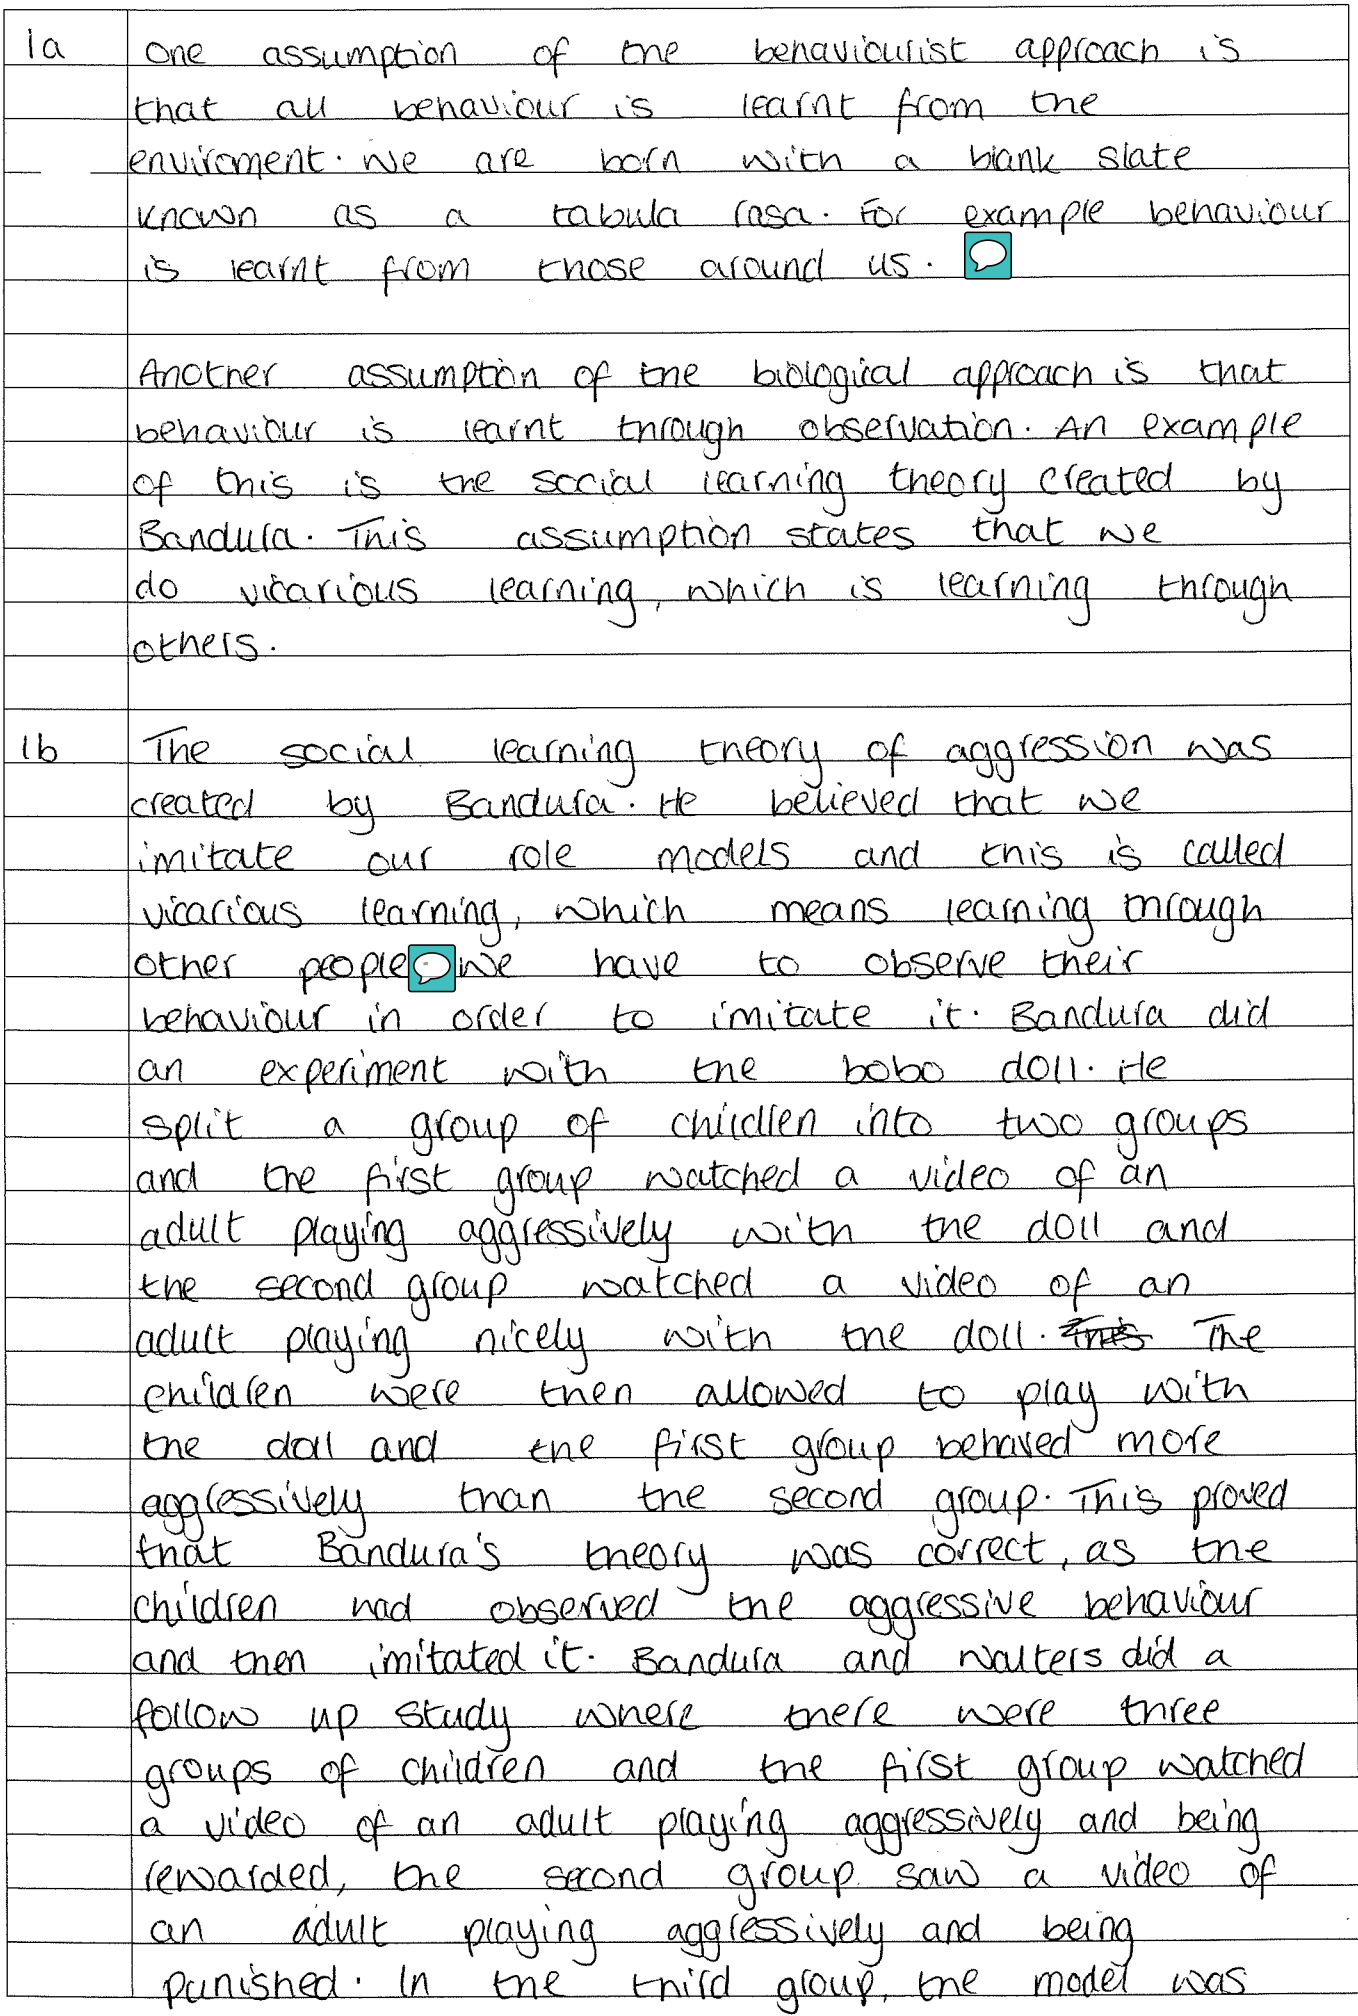 1a One assumption of the behaviourist approach is
that all behaviour is learnt from the
enviroment. We are born with a blank slate
known as a tabula rasa. For example behaviour
is learnt from those around us.
Another assumption of the biological approach is that
behaviour is learnt through observation. An example
of this is the social learning theory created by
Bandura. This assumption states that we
do vicarious learning, which is learning through
others.
1b The social learning theory of aggression was
created by Bandura. He believed that we
imitate our role models and this is called
vicarious learning, which means learning through
other people We have to observe their
behaviour in order to imitate it. Bandura did
an experiment with the bobo doll. He
split a group of children into two groups
and the first group watched a video of an
adult playing aggressively with the doll and
the second group watched a video of an
adult playing nicely with the doll. This The
children were then allowed to play with
the doll and the first group behaved more
aggressively than the second group. This proved
that Bandura's theory was correct, as the
children had observed the aggressive behaviour
and then imitated it. Bandura and Walters did a
follow up study where there were three
groups of children and the first group watched
a video of an adult playing aggressively and being
rewarded, the second group saw a video of
an adult playing aggressively and being
punished. In the third group, the model was